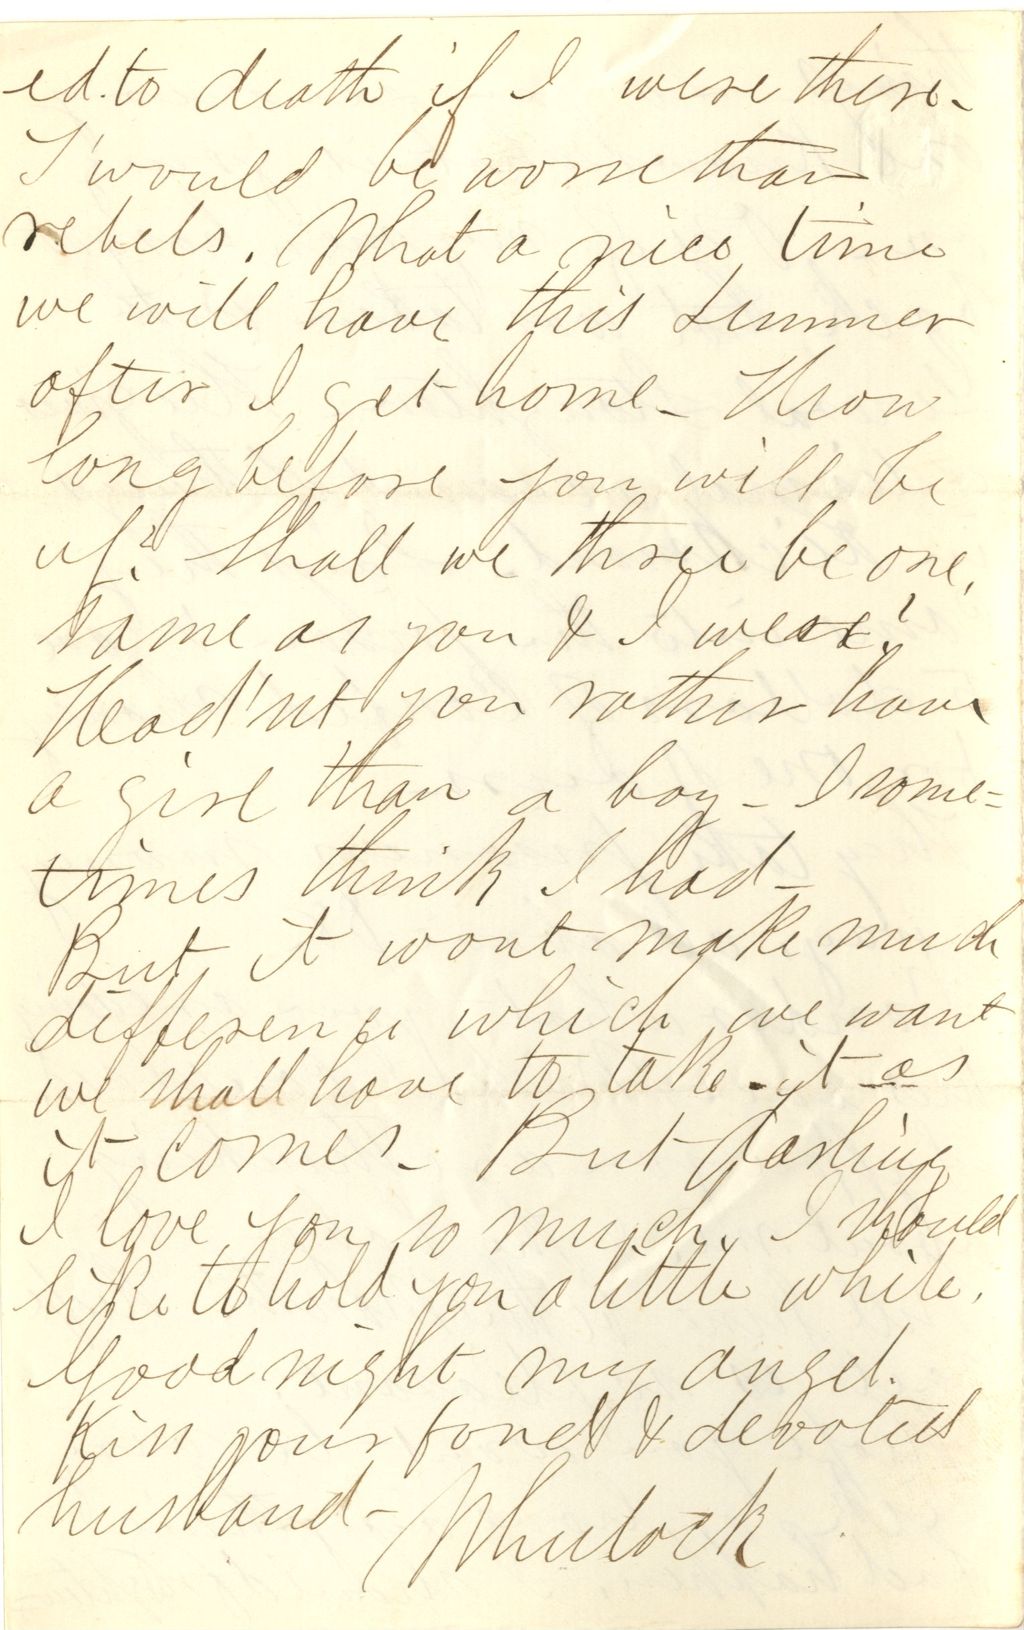 ed to death if I were there-
T'would be worse than
rebels. What a nice time
we will have this summer
after I get home- How
long before you will be
up? Shall we three be one,
same as you & I were?
Head'nt you rather have
a girl than a boy- I some=
times think I had-
But it wont make much
difference which we want
we shall have to take it as
it comes- But darling
I love you so much, I should
like to hold you a little while.
Good night my angel.
Kiss your fond & devoted
husband- Wheelock